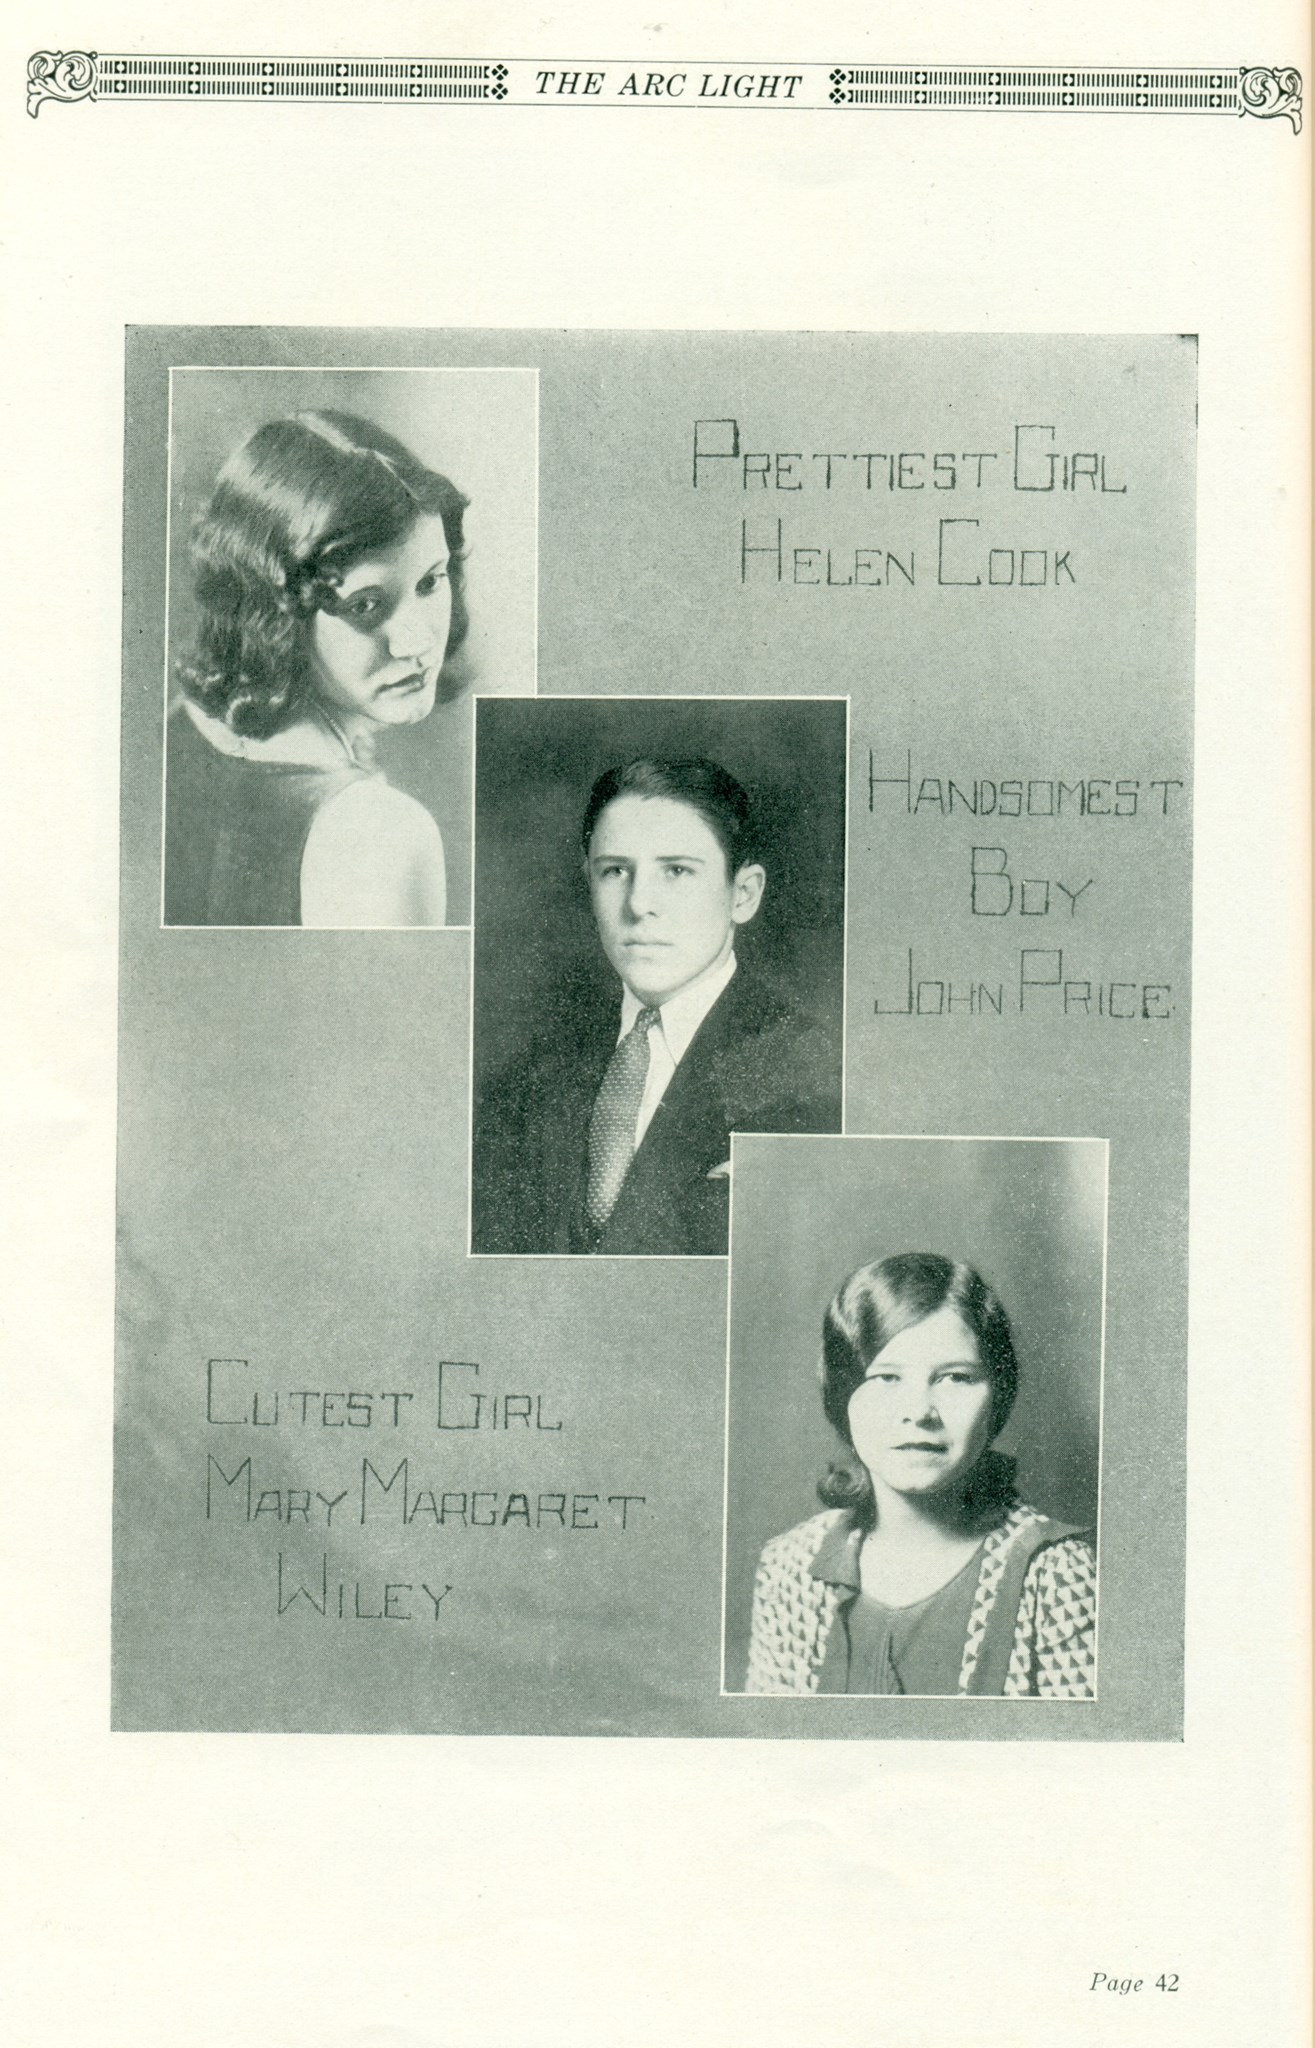 THE ARC LIGHT
PRETTIEST GIRL
HELEN COOK
HANDSOMEST
BOY
JOHN PRICE
CUTEST GIRL
MARY MARGARET
WILEY
Page 42